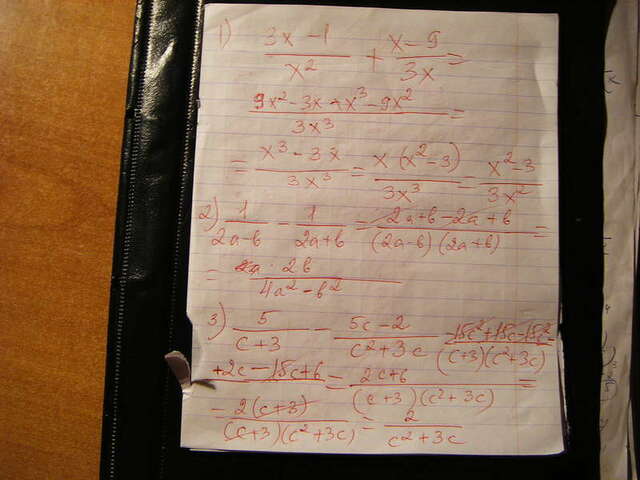 1) (3x - 1)/x² + (x - 9)/3x =
(9x² - 3x + x³ - 9x²)/3x³ =
= (x³ - 3x)/3x³ = x(x² - 3)/3x³ = (x² - 3)/3x²
2) 1/(2a-b) - 1/(2a+b) = (2a+b - 2a+b)/((2a-b)(2a+b)) =
= 2b/(4a² - b²)
3) 5/(c+3) - (5c-2)/(c²+3c) = (15c²+15c-15c²-)/((c+3)(c²+3c))
(+2c - 15c + 6) = (2c+6)/((c+3)(c²+3c)) =
= 2(c+3)/((c+3)(c²+3c)) = 2/(c²+3c)